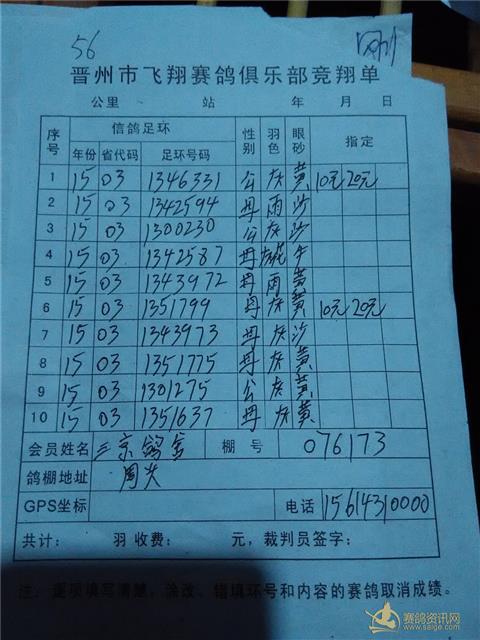 56 刚
晋州市飞翔赛鸽俱乐部竞翔单
公里 站 年 月 日
序号 信鸽足环 性别 羽色 眼砂 指定
年份 省代码 足环号码
1 15 03 1346331 公 灰 黄 10元 20元
2 15 03 1342594 母 雨 沙
3 15 03 1300230 公 灰 沙
4 15 03 1342587 母 灰花 牛
5 15 03 1343972 母 雨 黄
6 15 03 1351799 母 灰 黄 10元 20元
7 15 03 1343973 母 灰 沙
8 15 03 1351775 母 灰 黄
9 15 03 1301275 公 灰 黄
10 15 03 1351637 母 灰 黄
会员姓名 三京鸽舍 棚号 076173
鸽棚地址 周头
GPS坐标 电话 15614310000
共计: 羽 收费: 元,裁判员签字:
注:逐项填写清楚,涂改、错填环号和内容的赛鸽取消成绩。
赛鸽资讯网
www.saige.com